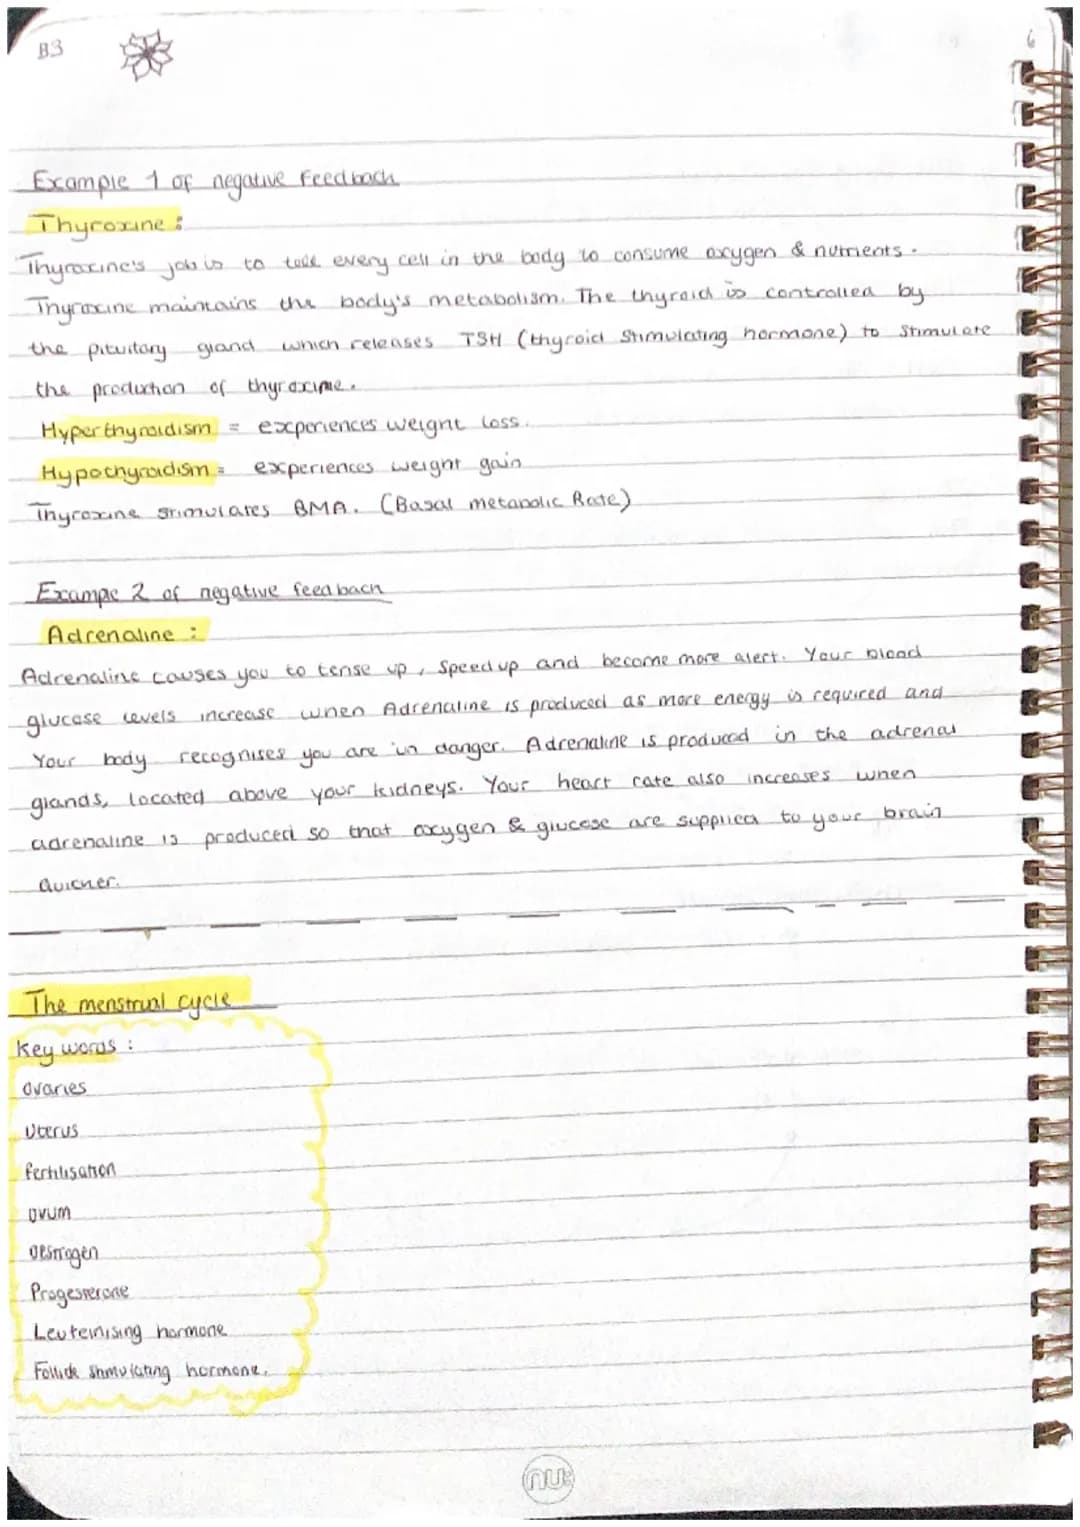 B3
6
Example 1 of negative feedback
Thyroxine:
Thyroxine's job is to tell every cell in the body to consume oxygen & nutrients.
Thyroxine maintains the body's metabolism. The thyroid is controlled by
the pituitary gland which releases TSH (thyroid Stimulating hormone) to stimulate
the production of thyroxine.
Hyperthyroidism = experiences weight loss.
Hypothyroidism = experiences weight gain
Thyroxine stimulates BMA. (Basal metabolic Rate)
Exampe 2 of negative feedback
Adrenaline:
Adrenaline causes you to tense up, speed up and become more alert. Your blood
glucose levels increase when Adrenaline is produced as more energy is required and
Your body recognises you are in danger. Adrenaline is produced in the adrenal
glands, located above your kidneys. Your heart rate also increases when
adrenaline is produced so that oxygen & glucose are supplied to your brain
Quicker.
The menstrual cycle
Key words:
Ovaries
Uterus
Fertilisation
Ovum
Oestrogen
Progesterone
Leuteinising hormone
Follicle stimulating hormone.
nu: